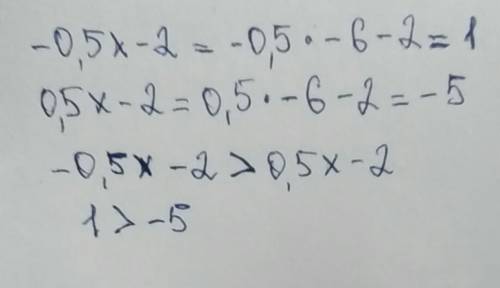 -0,5x-2 = -0,5·-6-2=1
0,5x-2=0,5·-6-2=-5
-0,5x-2>0,5x-2
1>-5